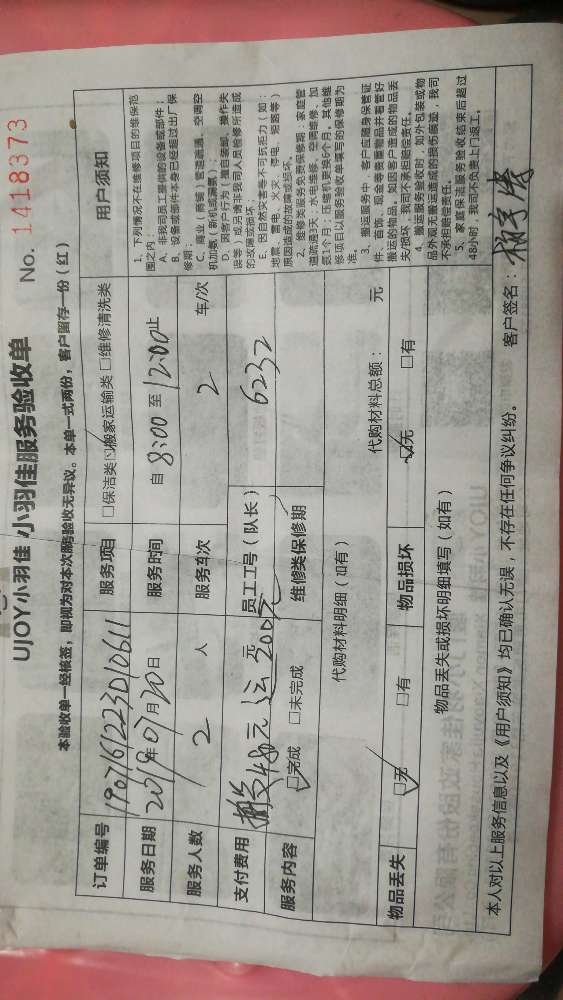 UJOY小羽佳 小羽佳服务验收单 No. 1418373
本验收单一经核签，即视为对本次服务验收无异议。本单一式两份，客户留存一份（红）
订单编号 190716122301061 服务项目 □保洁类 ☑搬家运输类 □维修清洗类
服务日期 2019年07月20日 服务时间 自 8:00 至 12:00止
服务人数 2 人 服务车次 2 车/次
支付费用 480元 200元 员工工号（队长） 6232
服务内容 ☑完成 □未完成 维修类保修期
代购材料明细（如有） 代购材料总额： 元
物品丢失 ☑无 □有 物品损坏 ☑无 □有
物品丢失或损坏明细填写（如有）
用户须知
1、下列情况不在维修项目的维保范
围之内：
A、非我司员工提供的设备或部件；
B、设备或部件本身已经超过出厂保
修期；
C、商业（商铺）管道疏通、空调空
机加氨（新机或漏氨）；
D、因客户行为（擅自装卸、操作失
误等）或后请非我司人员检修所造成
的故障或损坏。
E、因自然灾害等不可抗拒力（如：
地震、雷电、火灾、停电、短路等）
原因造成的故障或损坏。
2、维修类服务免费保修期：家庭管
道疏通3天；水电维修、空调维修、加
氨1个月；压缩机更换6个月。其他维
修项目以服务验收单填写的保修期为
准。
3、搬运服务中，客户应随身保管证
件、首饰、现金等贵重物品并看管好
搬运的物品，如因客户造成的物品丢
失/损坏，我司不承担赔偿责任。
4、搬运服务验收时，如外包装或物
品外观无搬运造成的损伤痕迹，我司
不承担赔偿责任。
5、家庭保洁服务验收结束后超过
48小时，我司不负责上门返工。
本人对以上服务信息以及《用户须知》均已确认无误，不存在任何争议纠纷。 客户签名：